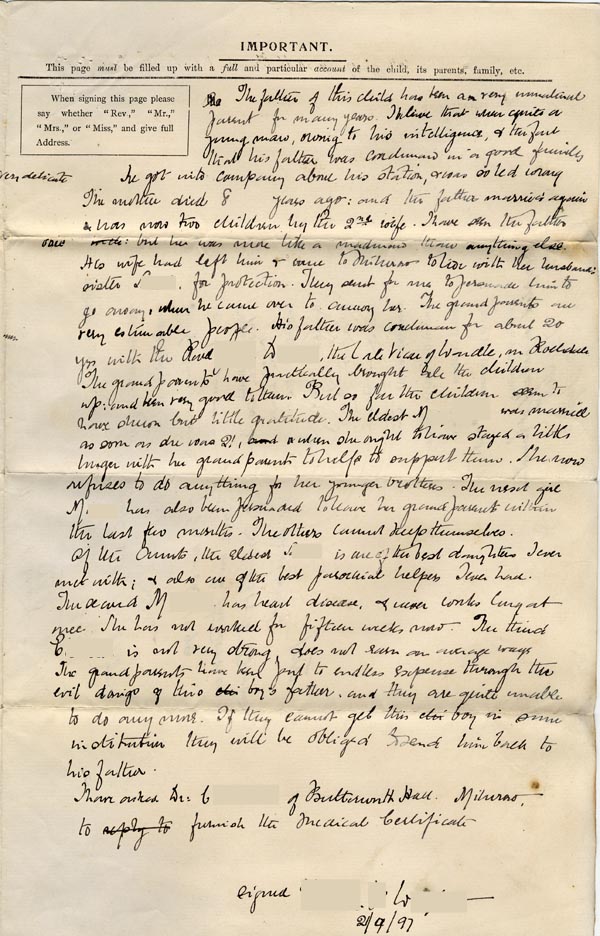 IMPORTANT.
This page must be filled up with a full and particular account of the child, its parents, family, etc.
When signing this page please
say whether "Rev," "Mr.,"
"Mrs.," or "Miss," and give full
Address.
The father of this child has been a very unnatural
parent for many years. I believe that when quite a
young man, owing to his intelligence, & the fact
that his father was coachman in a good family
very delicate
he got into company above his station, & was so led away
The mother died 8 years ago: and the father married again
& has now two children by the 2nd wife. I have seen the father
once but he was more like a madman than anything else.
His wife had left him & came to Milnrow to live with her husband's
sister S for protection. They sent for me to persuade him to
go away, when he came over to annoy her. The grandparents are
very estimable people. His father was coachman for about 20
yrs with the Revd D , the late Vicar of Wardle, in Rochdale
The grandparents have practically brought all the children
up: and been very good to them. But so far the children seem to
have shown but little gratitude. The eldest M was married
as soon as she was 21, and when she ought to have stayed a little
longer with her grandparents to help to support them. She now
refuses to do anything for her younger brothers. The next girl
M. has also been persuaded to leave her grandparents within
the last few months. The others cannot keep themselves.
Of the Aunts, the eldest S is one of the best daughters I ever
met with; & also one of the best parochial helpers I ever had.
The second M has heart disease, & never works long at
once. She has not worked for fifteen weeks now. The third
E. is not very strong does not earn an average wage
The grandparents have been put to endless expense through the
evil doings of this boy's father. and they are quite unable
to do any more. If they cannot get this boy in some
institution they will be obliged to send him back to
his father.
I have asked Dr: C of Butterworth Hall. Milnrow,
to reply to furnish the Medical Certificate
Signed W
2/9/97